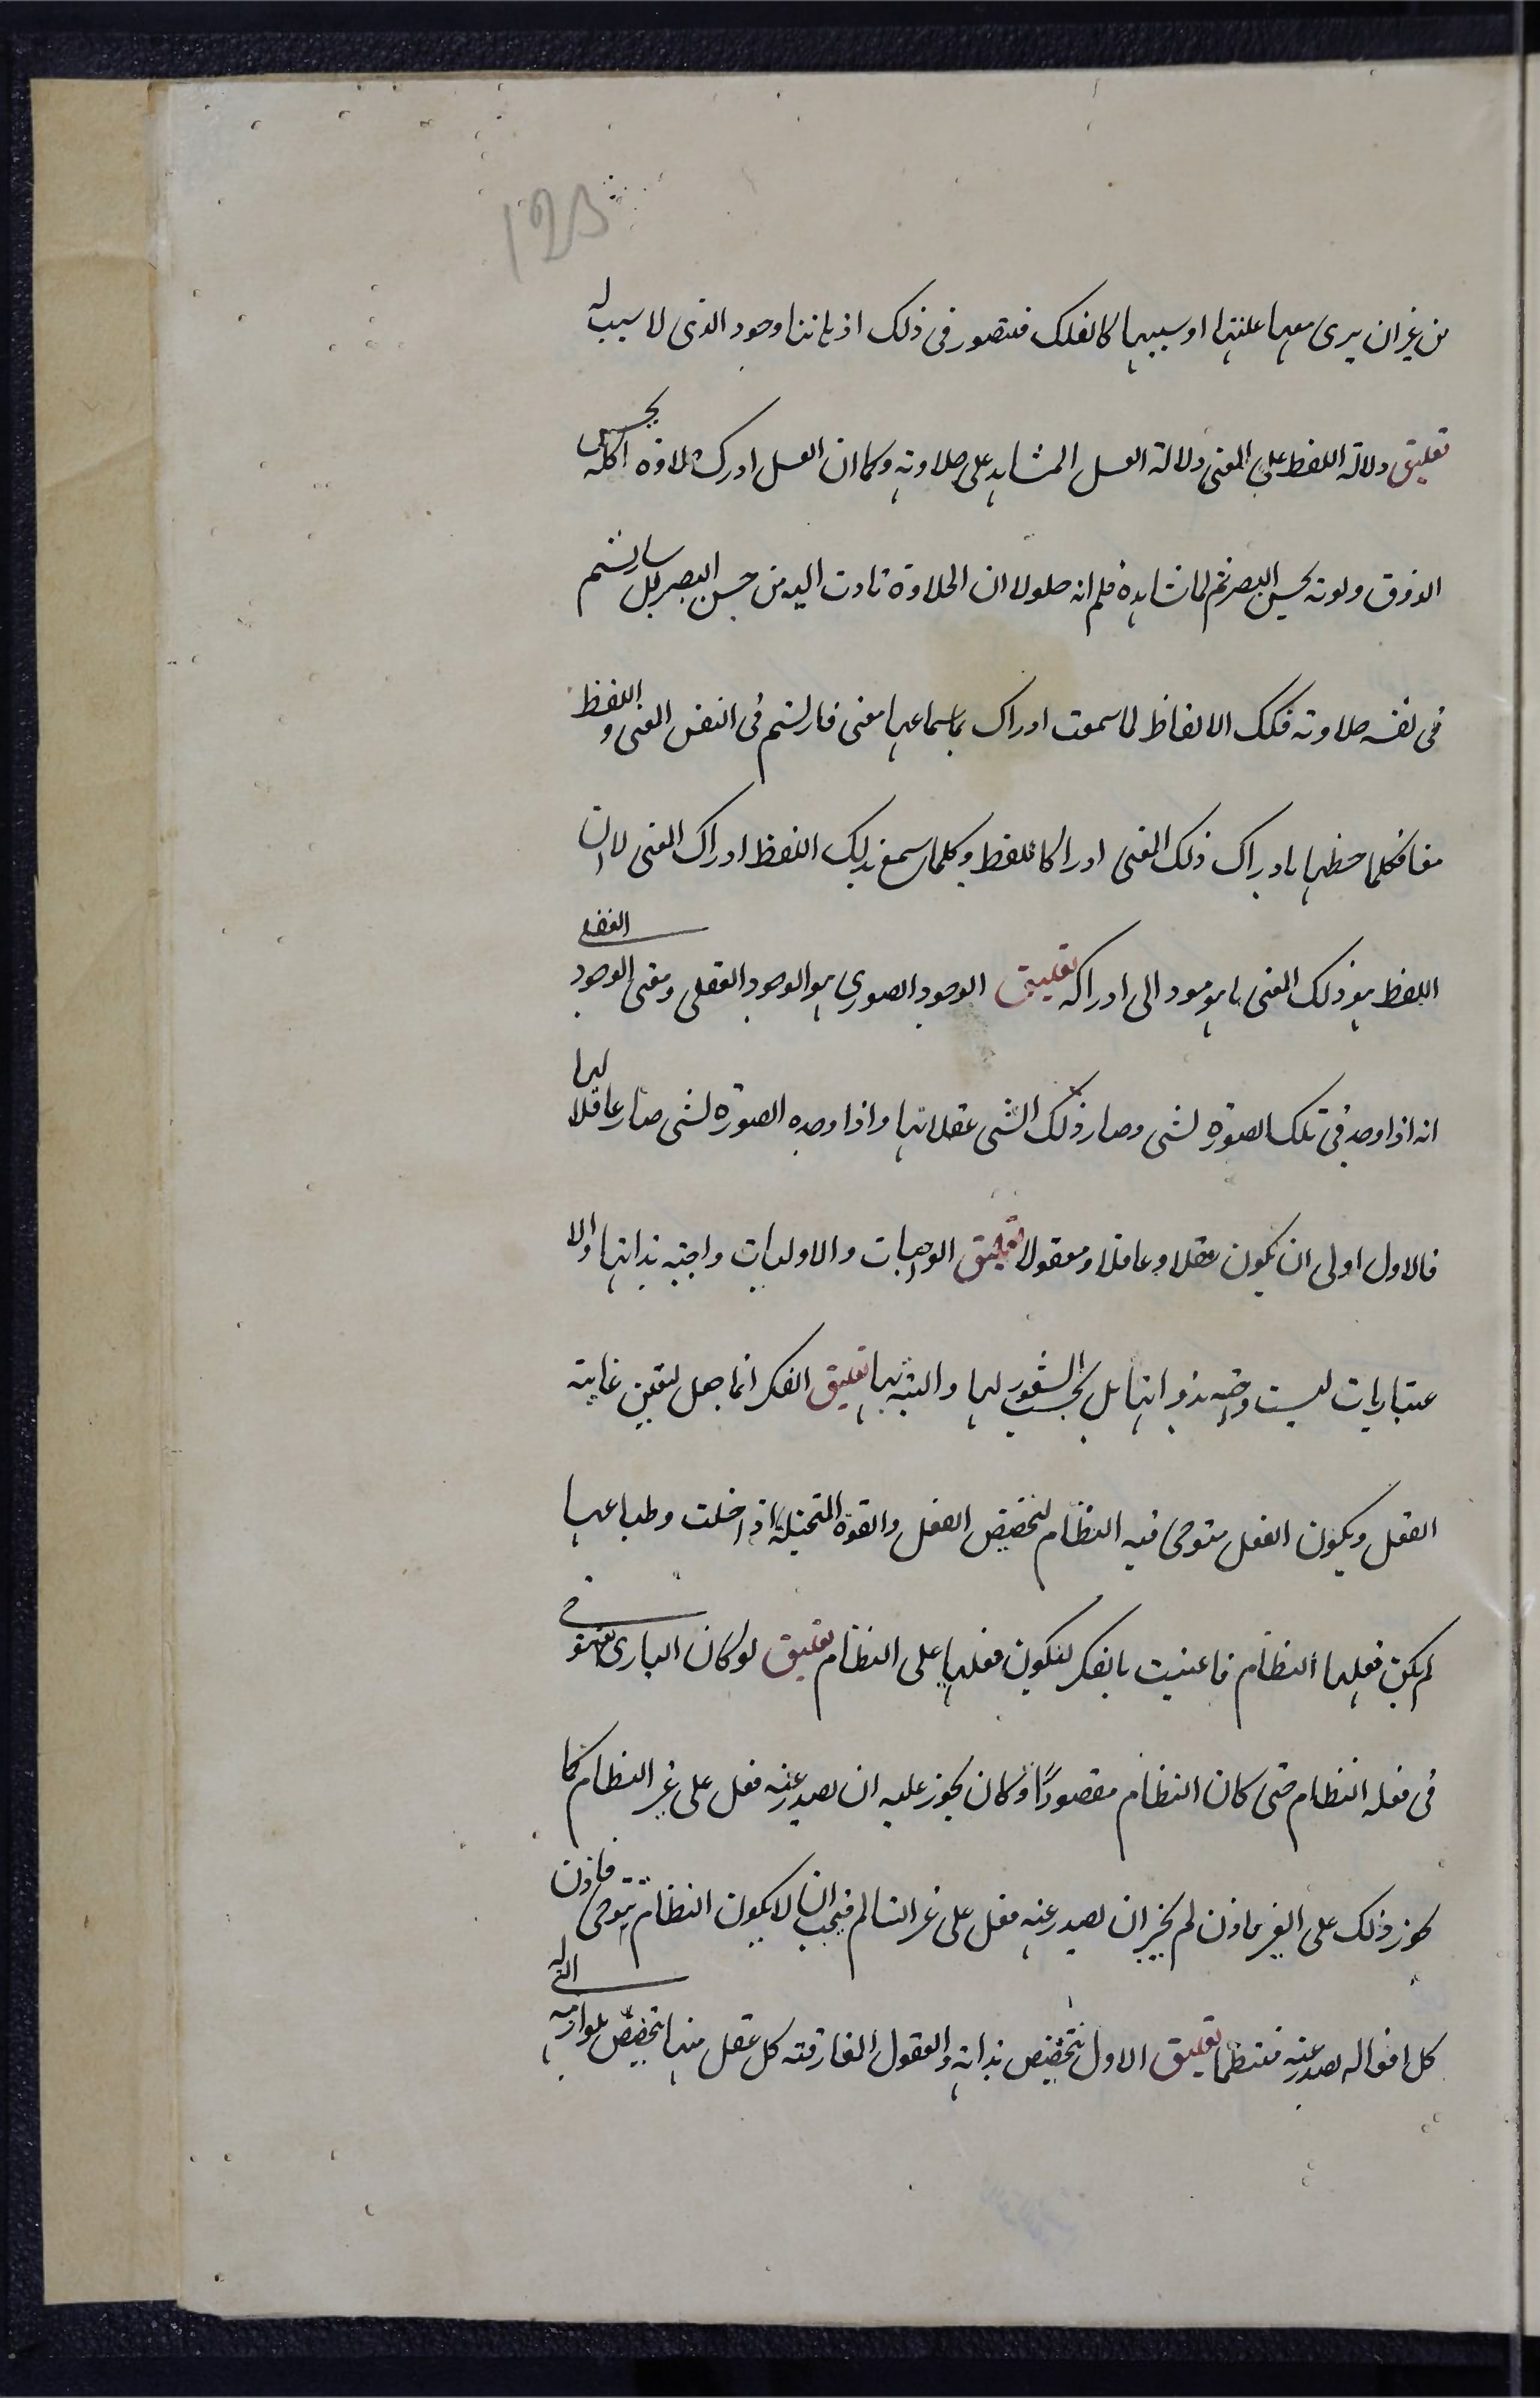 123
من غير ان يرى معها علتها او سببها كالفلك فيتصور في ذلك اذ باننا وجود الذى لا سبب له
تعليق دلالة اللفظ على المعنى دلالة العسل المشاهد على حلاوته وكما ان العسل ادرك حلاوة اكله بحس
الذوق ولونه بحس البصر ثم لما شاهده فلم انه حلو لا ان الحلاوة تادت اليه من حس البصر بل سار تسم
في نفسه حلاوته فكك الالفاظ لما سمعت ادراك باسماعها معنى فارتسم في النفس المعنى و اللفظ
معا فكلما حظها بادراك ذلك المعنى ادراكا للفظ وكلما سمع بذلك اللفظ ادراك المعنى لا ان
اللفظ هو ذلك المعنى بل هو مود الى ادراكه تعليق الوجود الصورى هو الوجود العقلى ومعنى الوجود العقلى
انه اذا وجد في تلك الصورة لشى وصار ذلك الشى عقلا بها واذا وجده الصورة لشى صار عاقلا لها
فالاول اولى ان يكون عقلا وعاقلا ومعقولا تعليق الواجبات والاوليات واجبه بذاتها والا
عتباريات ليست واجبه بذواتها بل بحسب الشعور لها والتنبه بها تعليق الفكر انما جعل لتعين غاية
العقل ويكون الفعل متوخى فيه النظام لتخصيص الفعل والقوة المتخيلة اذا خلت وطباعها
لم يكن فعلها النظام فاعنيت بالفكر ليكون فعلها على النظام تعليق لو كان البارى تعالى يتوخى
في فعله النظام حتى كان النظام مقصودًا وكان يجوز عليه ان يصدر عنه فعل على غير النظام كما
يجوز ذلك على الغير فاذن لم يجز ان يصدر عنه فعل على غير النظام فيجب ان لا يكون النظام يتوخى فاذن
كل افعاله يصدر عنه منتظما تعليق الاول يتخصص بذاته والعقول المفارقة كل عقل منها يتخصص بلوازمه التى له